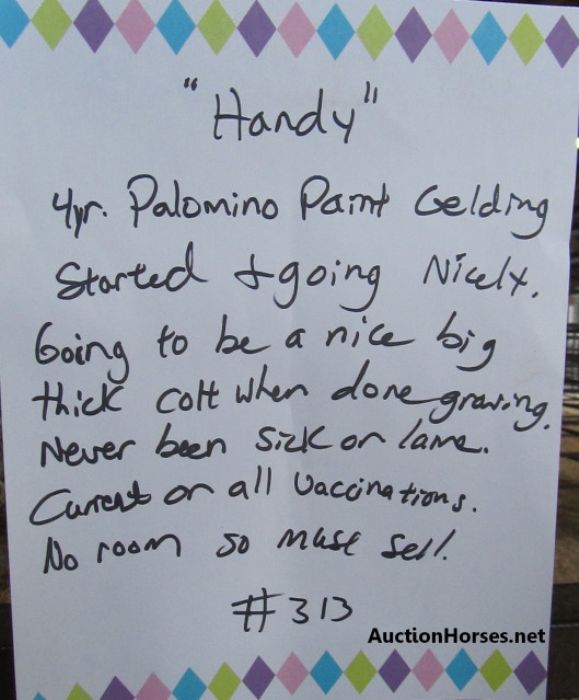 "Handy"
4yr. Palomino Paint Gelding
Started & going Nicely.
Going to be a nice big
thick colt when done growing.
Never been sick or lame.
Current on all vaccinations.
No room so must sell.
#313
AuctionHorses.net